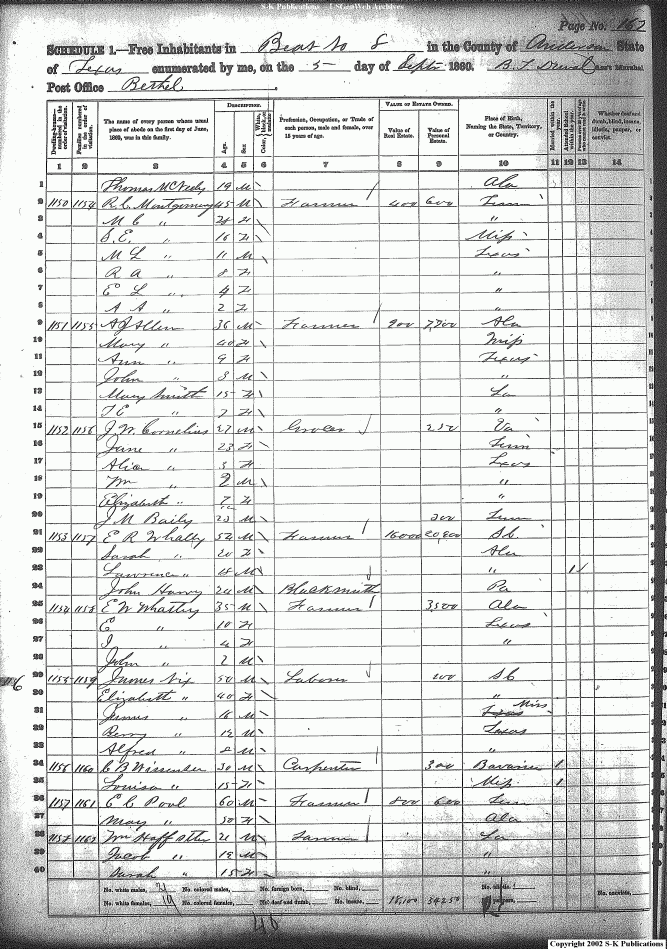 S-K Publications - USGenWeb Archives
Page No. 162
SCHEDULE 1.—Free Inhabitants in Beat No 8 in the County of Anderson State
of Texas enumerated by me, on the 5 day of Sept 1860. B. F. Ass't Marshal
Post Office Bethel
DESCRIPTION. VALUE OF ESTATE OWNED.
Dwelling-houses—numbered in the order of visitation.
Families numbered in the order of visitation.
The name of every person whose usual place of abode on the first day of June, 1860, was in this family.
Age. Sex. White, black, or mulatto. Color,
Profession, Occupation, or Trade of each person, male and female, over 15 years of age.
Value of Real Estate. Value of Personal Estate.
Place of Birth, Naming the State, Territory, or Country.
Married within the year. Attended School within the year.
Whether deaf and dumb, blind, insane, idiotic, pauper, or convict.
1 2 3 4 5 6 7 8 9 10 11 12 13 14
1 Thomas McNeely 19 M Ala
2 1150 1154 R. C. Montgomery 45 M Farmer 400 600 Tenn
3 M C " F "
4 S. E. " 16 F Miss
5 M L " 11 M Texas
6 R A " 8 F "
7 E L " 4 F "
8 A A " 2 F "
9 1151 1155 A J Allen 36 M Farmer 900 Ala
10 Mary " 40 F Miss
11 Ann " 9 F Texas
12 John " 3 M "
13 Mary Smith 15 F La
14 F E " 7 F "
15 1152 1156 J. W. Cornelius 27 M Grocer 250 Va
16 June " 23 F Tenn
17 Alice " 3 F Texas
18 Wm " 2 M "
19 Elizabeth " F "
20 J M Baily 23 M 200 Tenn
21 1153 1157 E R Whatly 52 M Farmer 16000 20,800 S C
22 Sarah " 20 F Ala
23 Lawrence " 18 M " 1
24 John Harvy 24 M Blacksmith Pa
25 1154 1158 E W Whatley 35 M Farmer 3,500 Ala
26 E " 10 F Texas
27 I " 4 F "
28 John " 2 M
29 1155 1159 James Nix 50 M Laborer 200 S C
30 Elizabeth " 40 F "
31 James " 16 M Texas Miss
32 Perry " 12 M Texas
33 Alfred " 8 M "
34 1156 1160 C B Wissender 30 M Carpenter 300 Bavaria 1
35 Louisa " 15 F Miss 1
36 1157 1161 E C Pool 60 M Farmer 800 600 Tenn
37 Mary " 50 F Ala
38 1158 1162 Wm Haffstter 21 M Farmer La
39 Jacob " 19 M "
40 Sarah " 15 F "
No. white males, 21 No. colored males, No. foreign born, No. blind,
No. white females, 19 No. colored females, No. deaf and dumb, No. insane, 18,100 34250 No. convicts,
40
Copyright 2002 S-K Publications